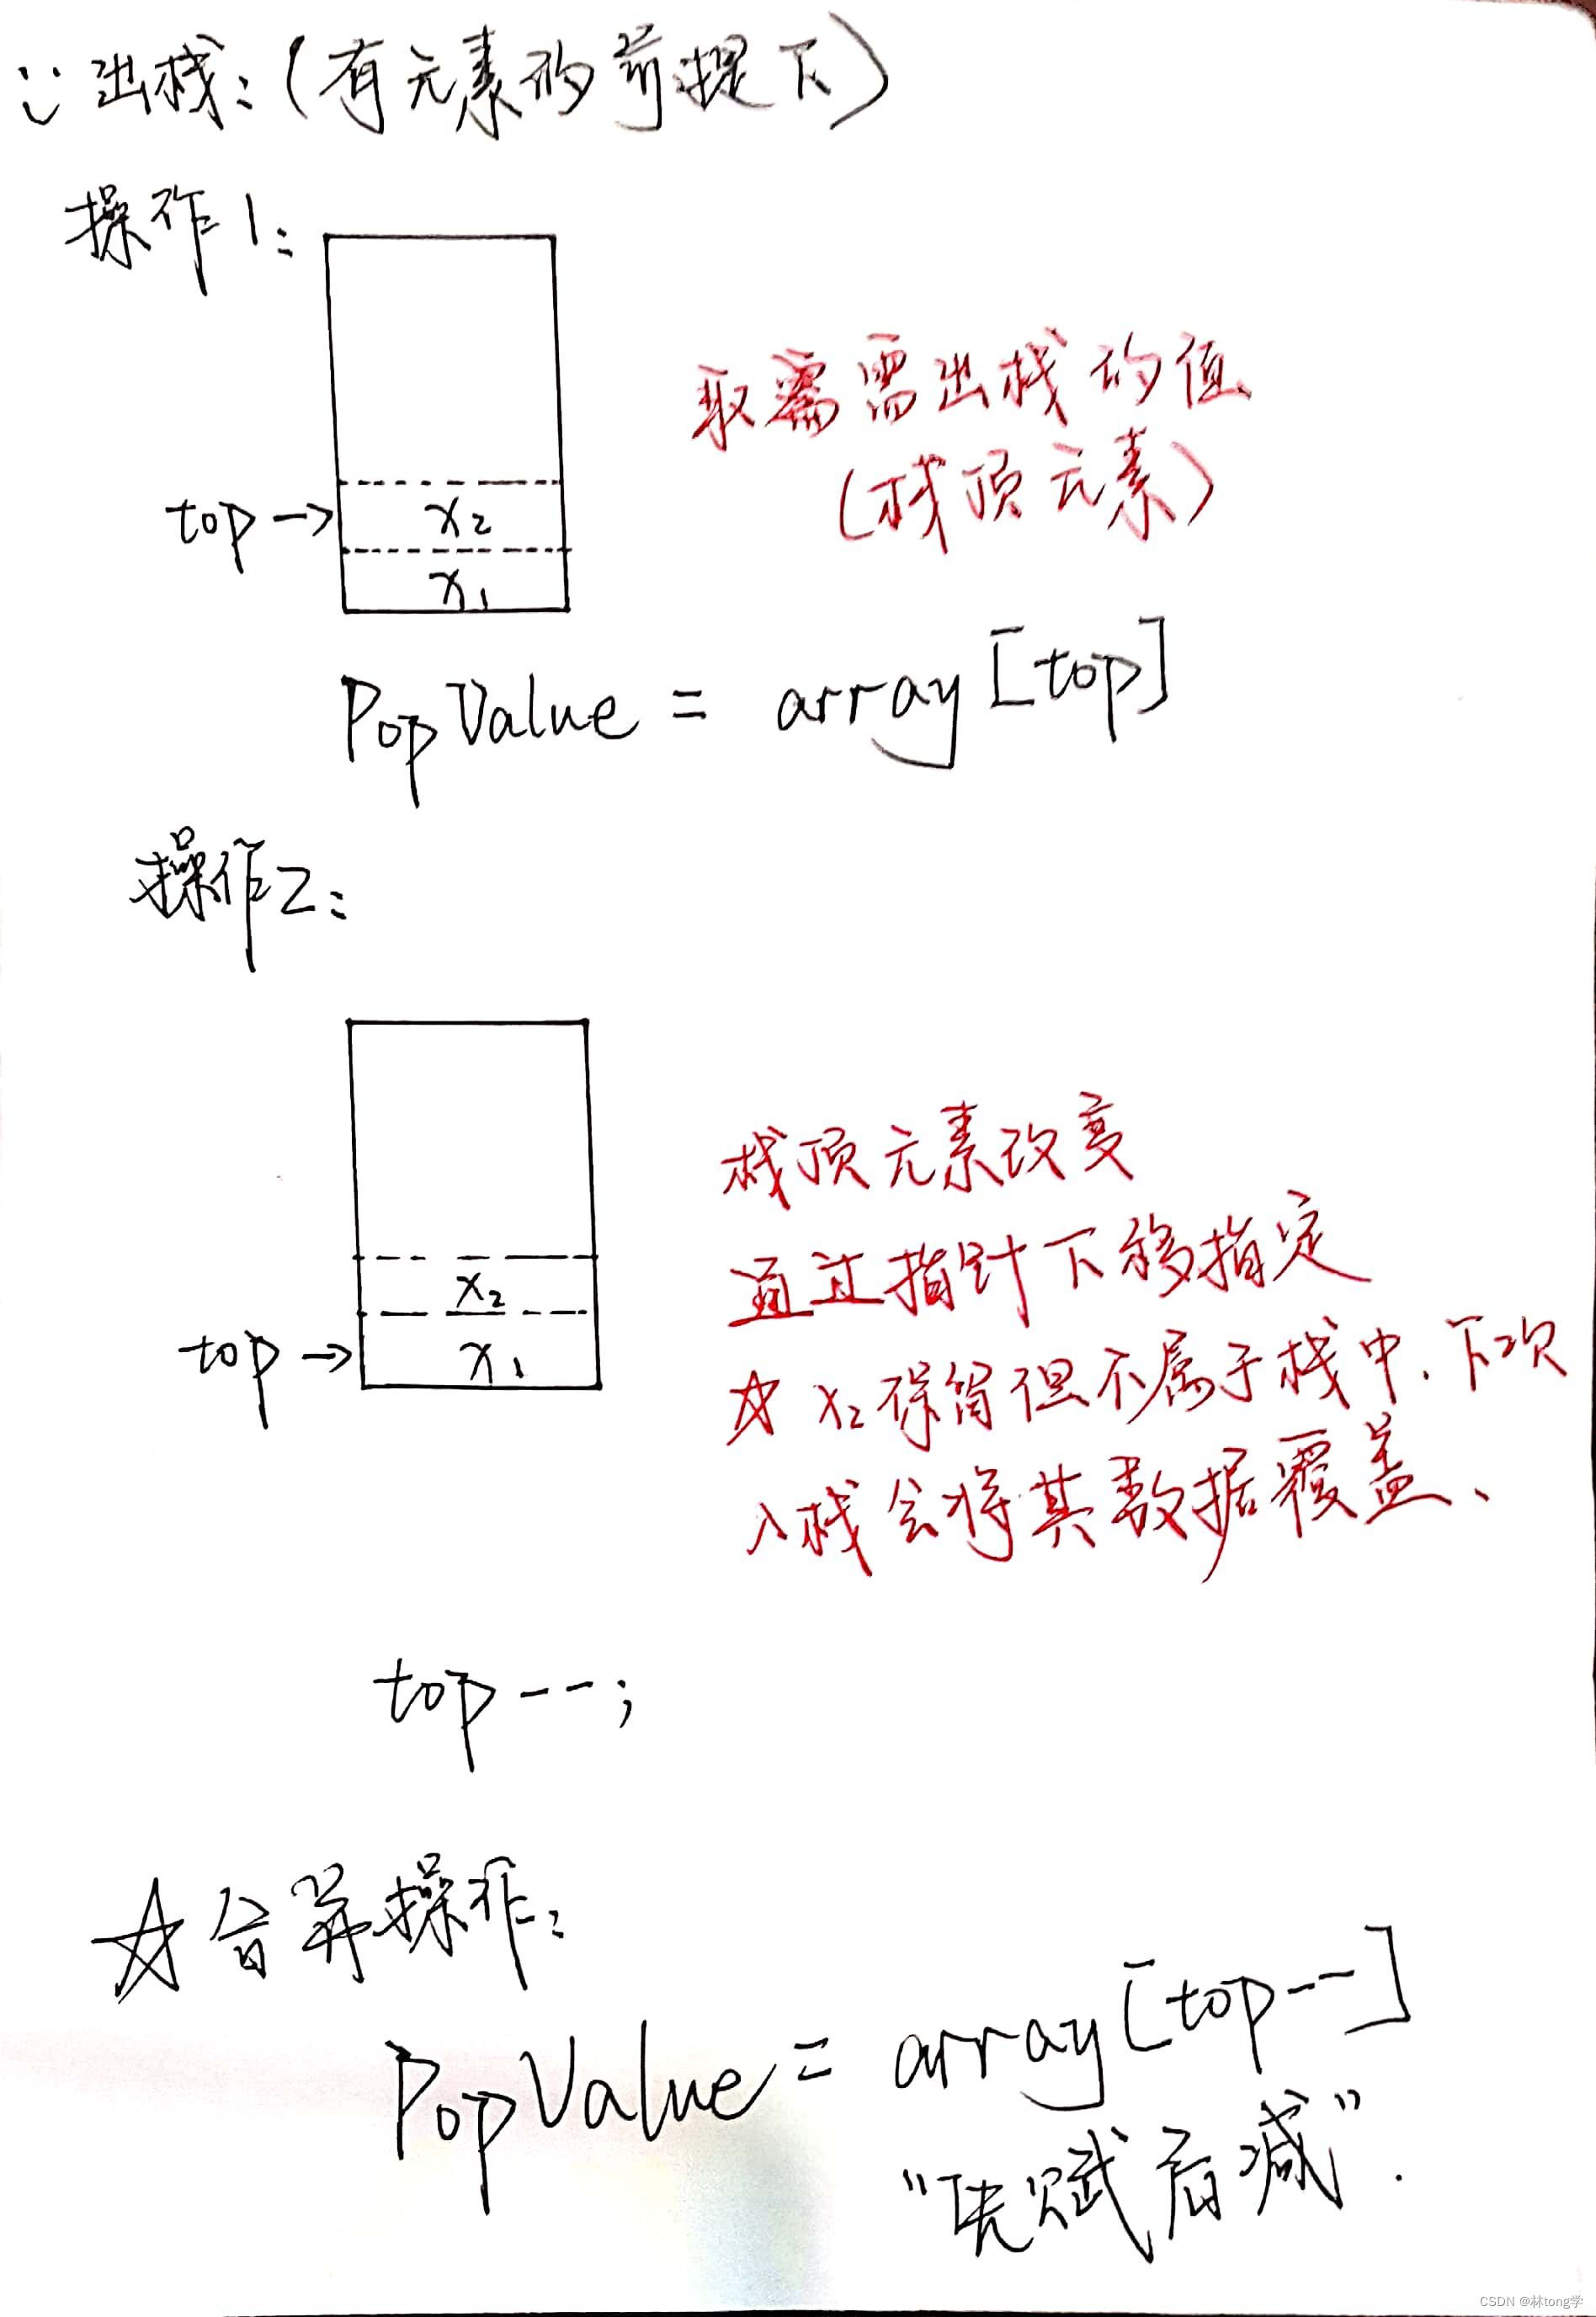 ∵出栈:(有元素的前提下)
操作1:
取需需出栈的值
(栈顶元素)
top→
x₂
x₁
PopValue = array[top]
操作2:
栈顶元素改变
通过指针下移指定
☆ x₂保留但不属于栈中.下次
入栈会将其数据覆盖、
x₂
top→
x₁
top--;
☆合并操作:
PopValue = array[top--]
“先赋后减”.
CSDN @林tong学